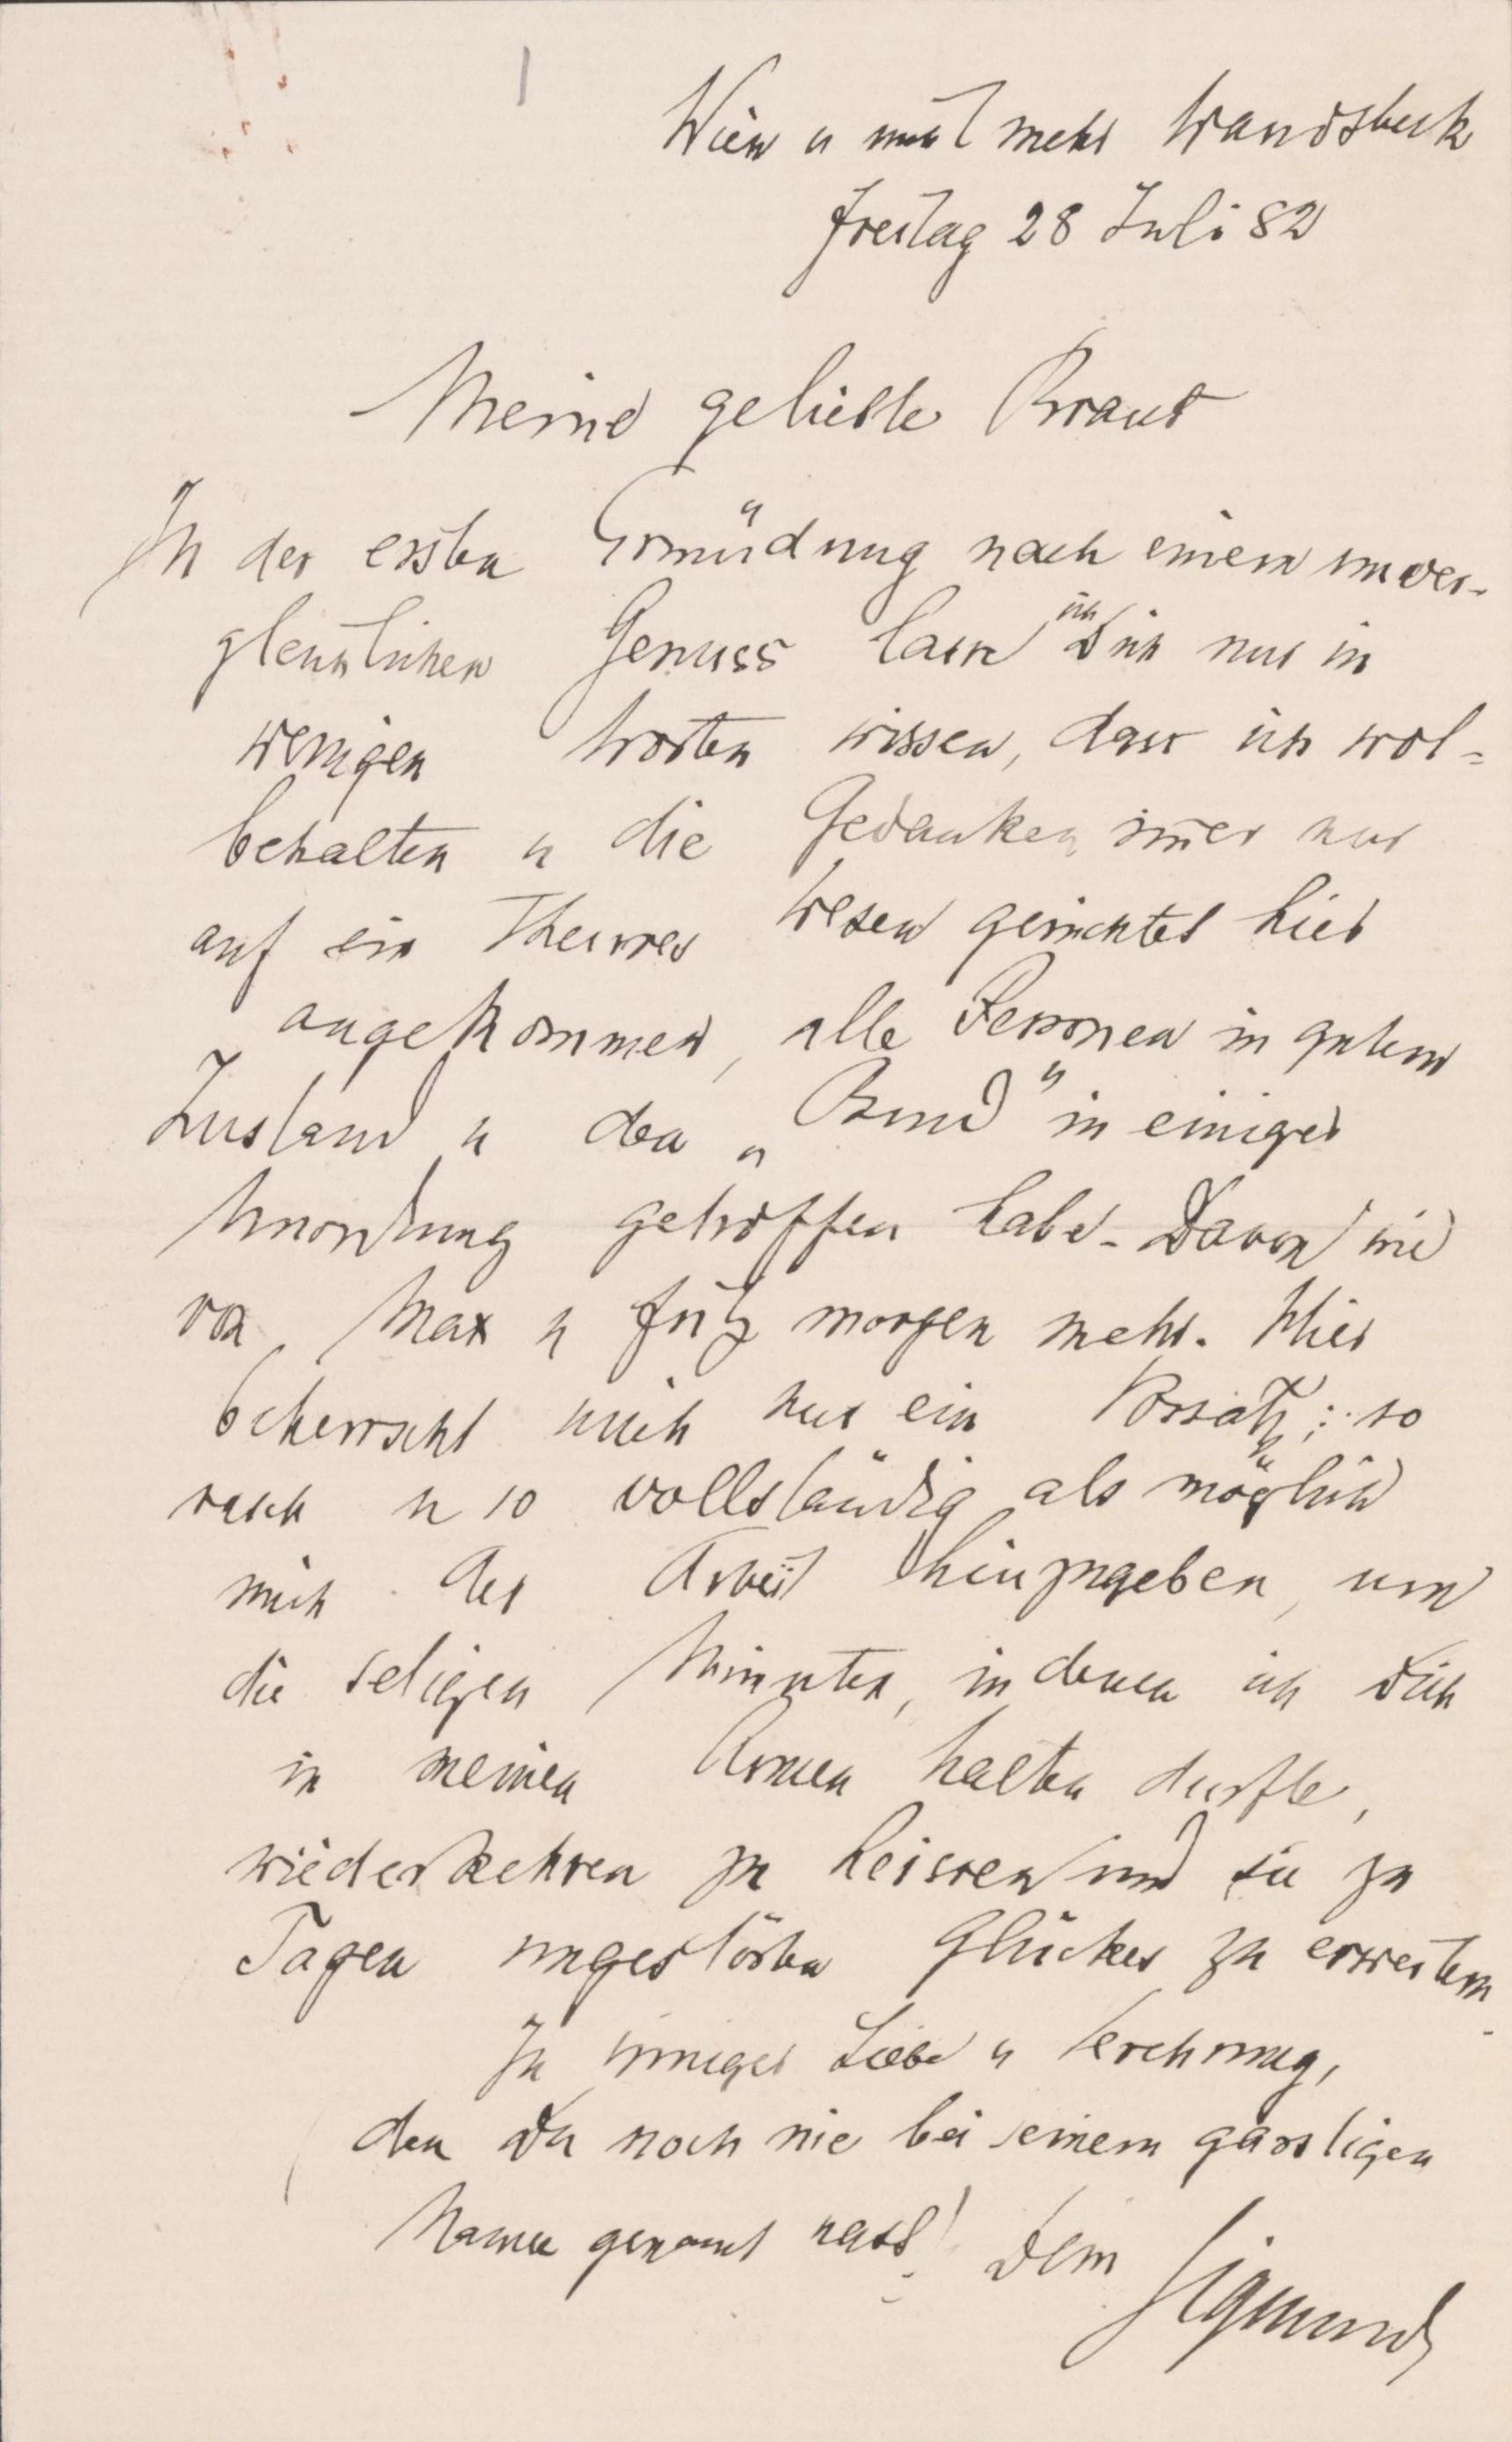 Wien u nicht mehr Wandsbeck
Freitag 28 Juli 82
Meine geliebte Braut
In der ersten Ermüdung nach einem unver-
gleichlichen Genuss lasse ich Dich nur in
wenigen Worten wissen, dass ich wol=
behalten u die Gedanken im̄er nur
auf ein Theures Wesen gerichtet hier
angekommen, alle Personen in gutem
Zustand u den „Bund" in einiger
Unordnung getroffen habe. Davon wie
von Max u Fritz morgen mehr. Hier
beherrscht mich nur ein Vorsatz: so
rasch u so vollständig als möglich
mich der Arbeit hinzugeben, um
die seligen Minuten, in denen ich Dich
in meinen Armen halten durfte,
wiederkehren zu heissen und sie zu
Tagen ungestörten Glückes zu erweitern.
In inniger Liebe u Verehrung,
den Du noch nie bei seinem garstigen
Namen genannt hast! Dein Sigmund